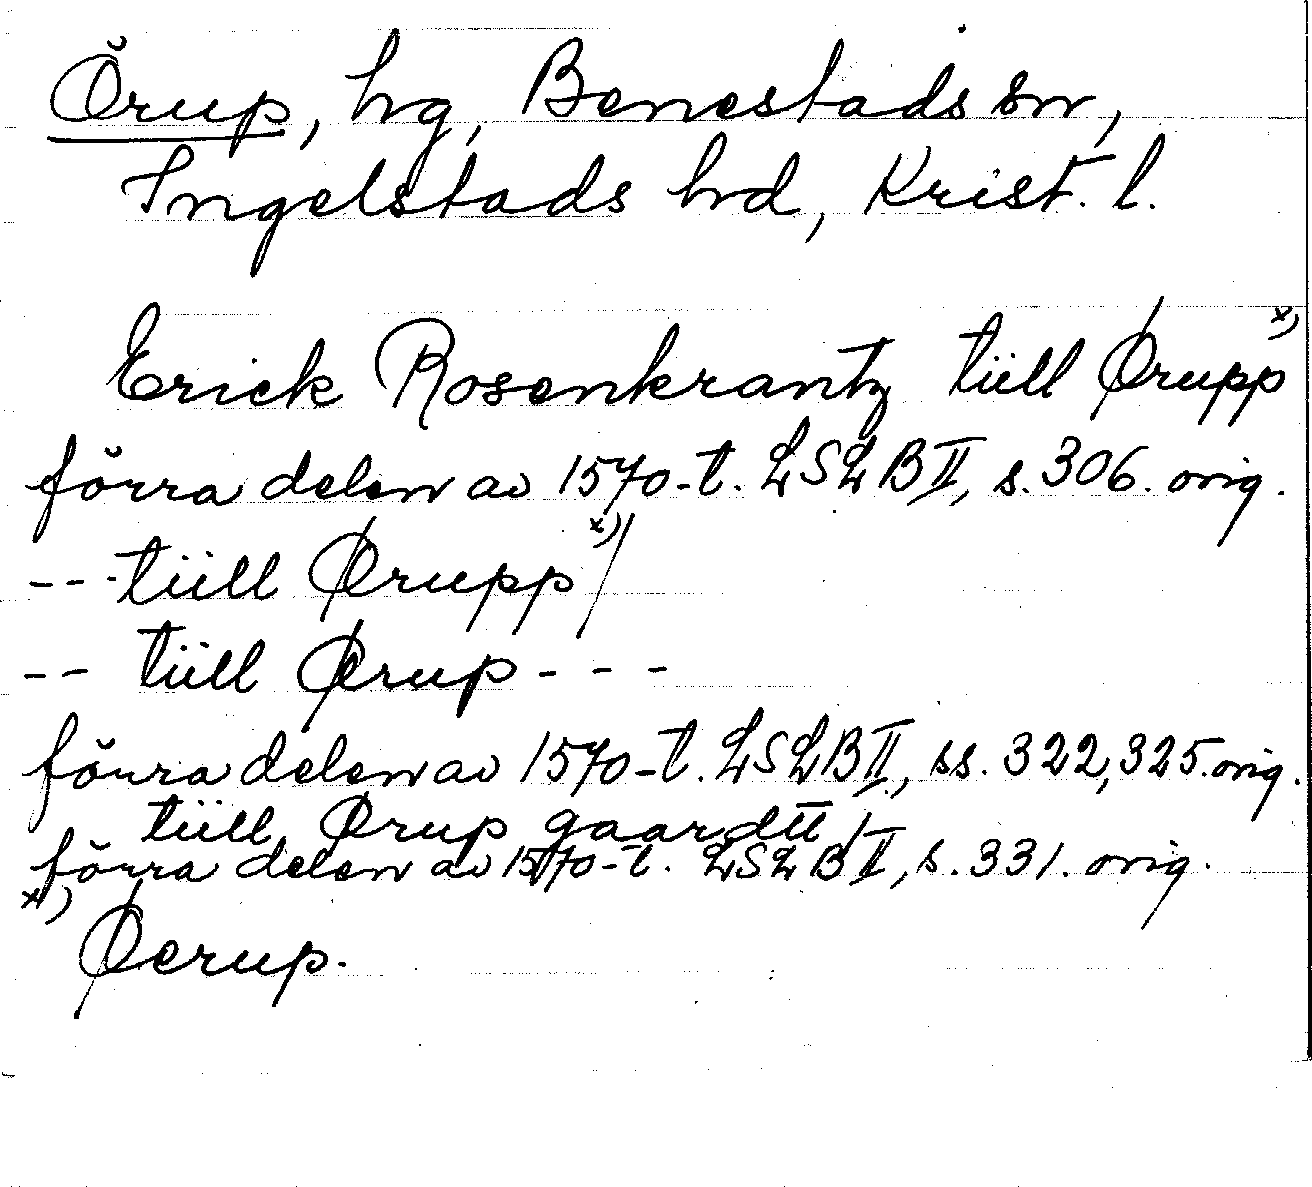 Örup, hg, Benestads sn,
Ingelstads hd, Krist. l.
Erick Rosenkrantz tiill Ørupp x)
förra delen av 1570-t. LSLB II, s. 306. orig.
--- tiill Ørupp x) /
-- tiill Ørup ---
förra delen av 1570-t. LSLB II, ss. 322, 325. orig.
tiill Ørup gaardtt /
förra delen av 1570-t. LSLB II, s. 331. orig.
x) Øerup.